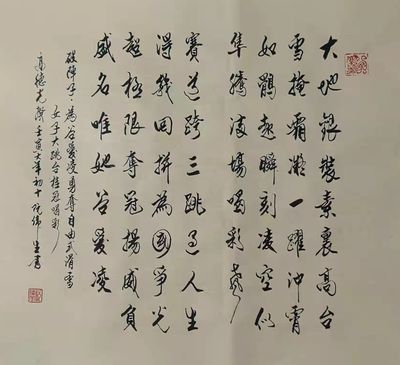 大地銀裝素裹高台
雪掩霜凝一躍沖霄
如鵲遠瞬刻凌空似
隼騰凌場喝彩聲
賽道跨三跳過人生
得幾回拼為國爭光
超極限奪冠揚威負
威名唯她谷愛凌
破陣子·為谷愛凌勇奪自由式滑雪
女子大跳台桂冠喝彩
高德光 壬寅大年初十 偉生書